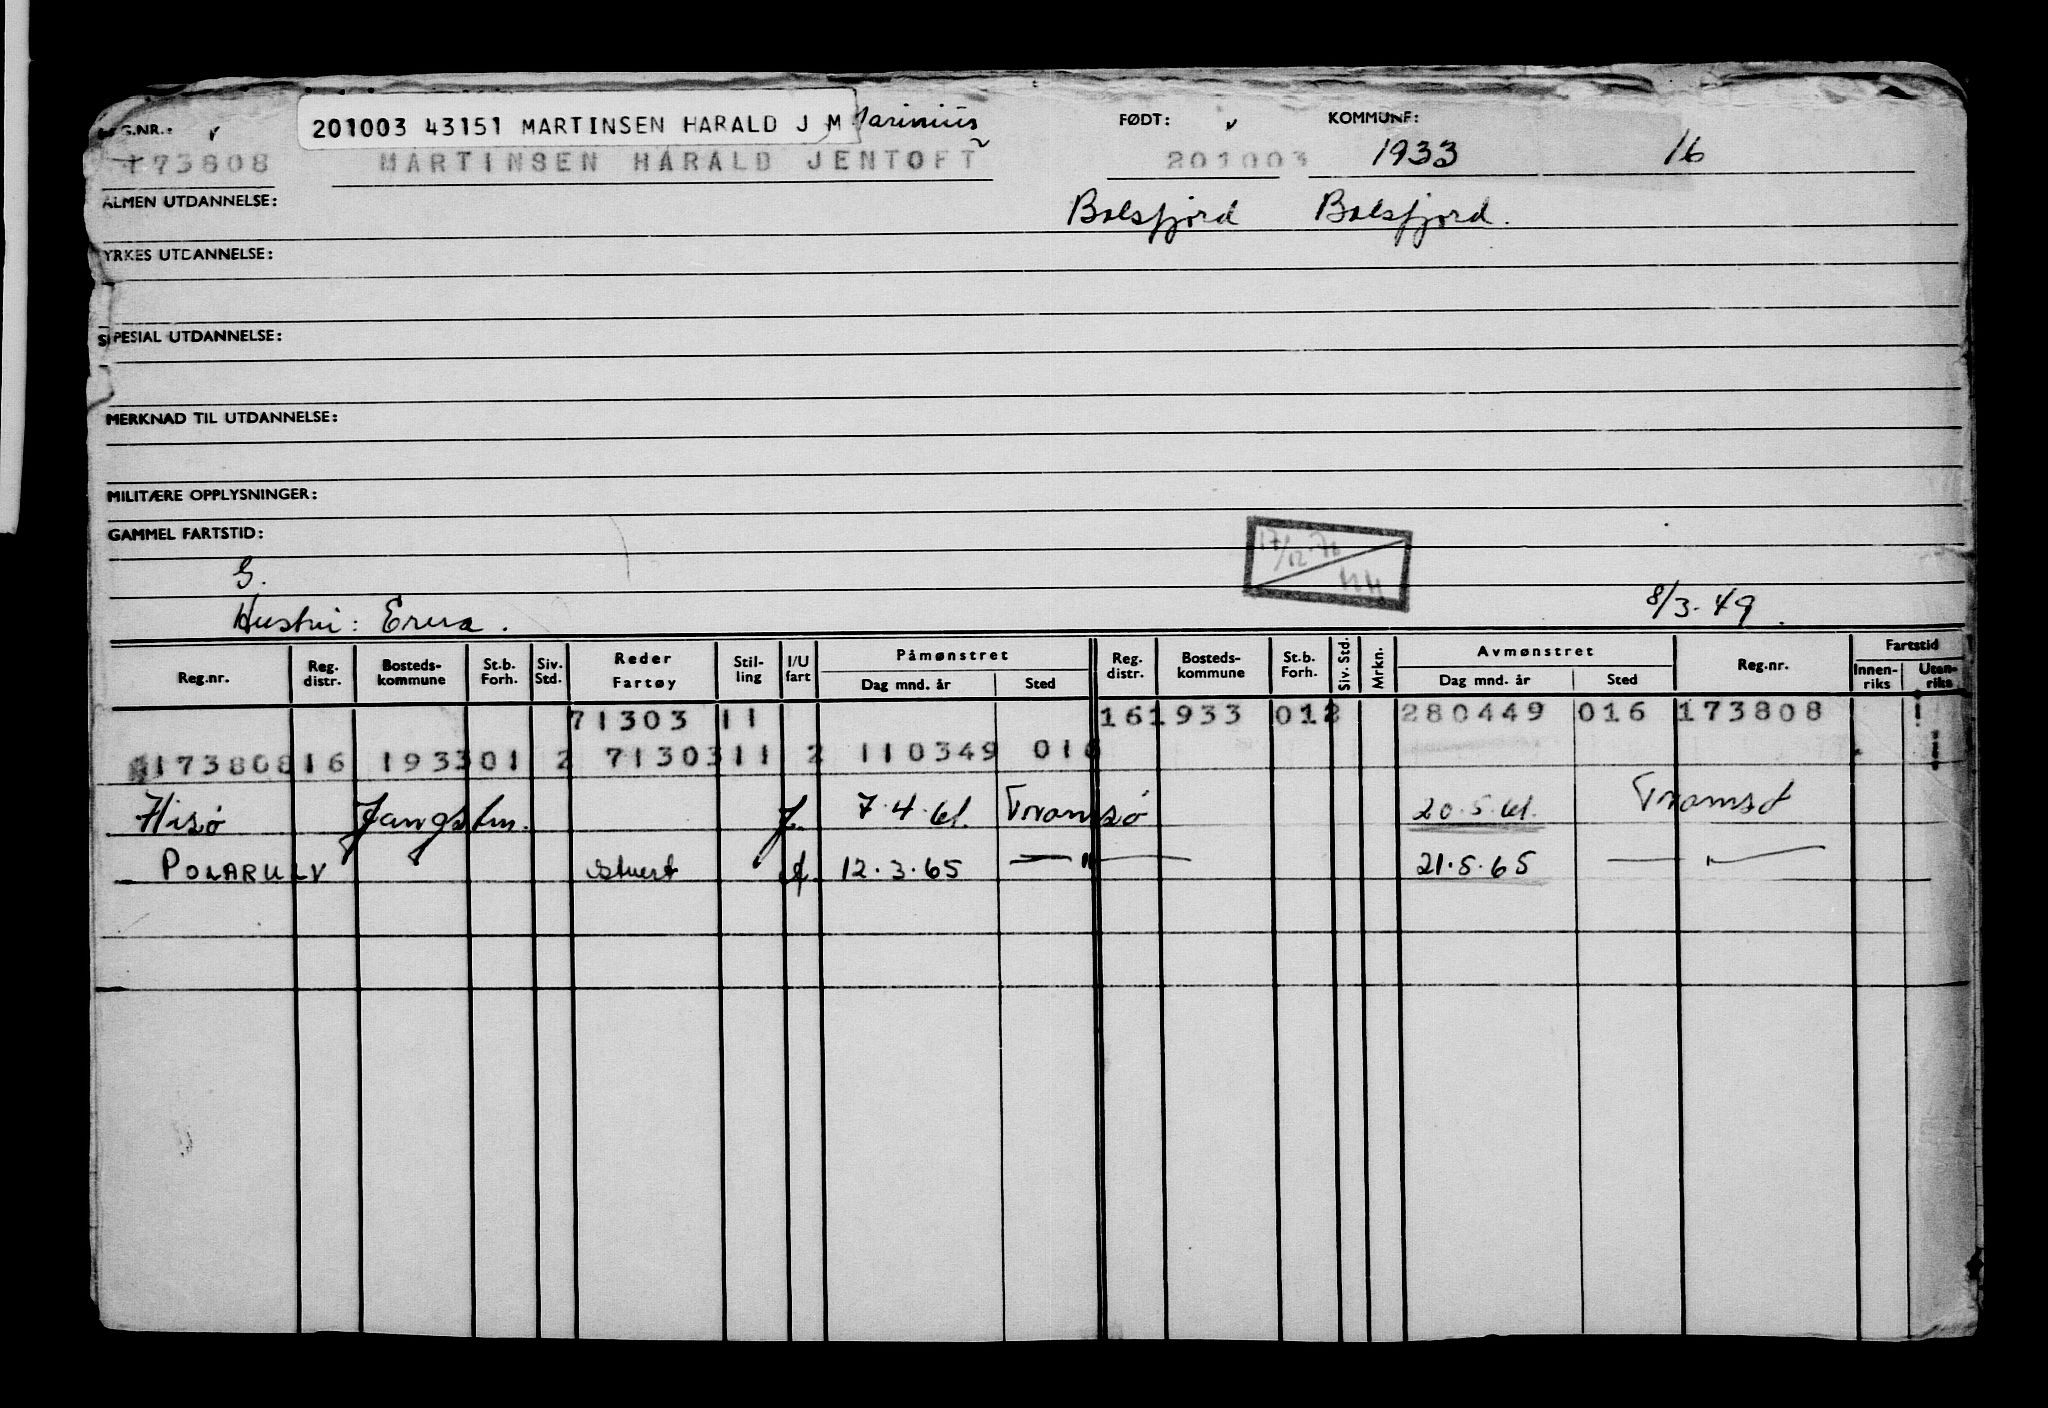 201003 43151 MARTINSEN HARALD J M Marinius
REG.NR.: v FØDT: v KOMMUNE:
173808 MARTINSEN HARALD JENTOFT 201003 1933 16
ALMEN UTDANNELSE: Balsfjord Balsfjord.
YRKES UTDANNELSE:
SPESIAL UTDANNELSE:
MERKNAD TIL UTDANNELSE:
MILITÆRE OPPLYSNINGER:
GAMMEL FARTSTID:
17/12-76
HH
G.
Hustru: Erna. 8/3-49.
Reg.nr. Reg. distr. Bosteds-kommune St.b. Forh. Siv. Std. Reder Fartøy Stil-ling I/U fart Påmønstret Dag mnd. år Sted Reg. distr. Bosteds-kommune St.b. Forh. Siv. Std. Mrkn. Avmønstret Dag mnd. år Sted Reg.nr. Fartstid Innen-riks Uten-riks
71303 11 161933 012 280449 016 173808
173808 16 1933 01 2 71303 11 2 110349 016
Hisø Fangstm. f. 7.4.61. Tromsø 20.5.61. Tromsø
POLARULV stuert f. 12.3.65 — " — 21.5.65 — " —